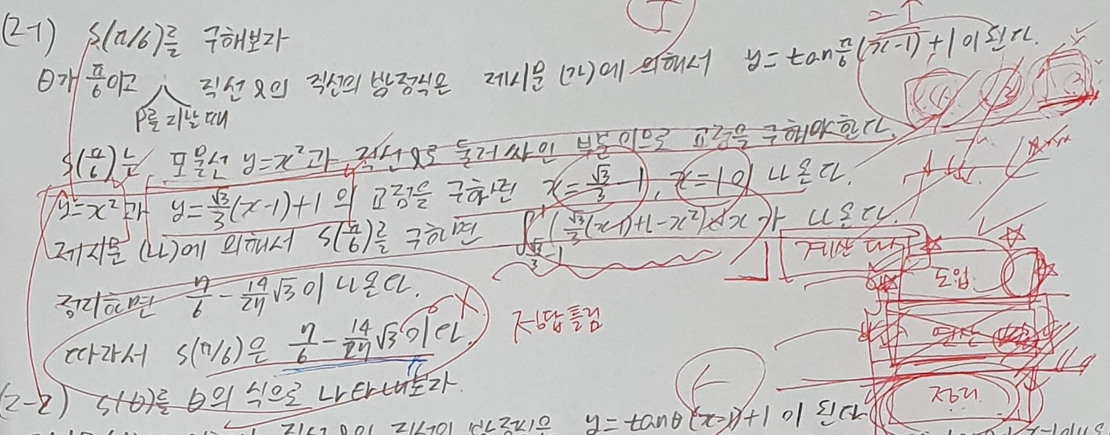 (2-1) S(π/6)를 구해보라
θ가 π/6이고 직선 l의 직선의 방정식은 제시문 (가)에 의해서 y=tanπ/6(x-1)+1이 된다.
P를 지날 때
S(π/6)는, 포물선 y=x²과 직선 l로 둘러 싸인 부분이므로 교점을 구해야한다.
y=x²과 y=√3/3(x-1)+1의 교점을 구하면 x=√3/3-1, x=1이 나온다.
제시문 (나)에 의해서 S(π/6)를 구하면 ∫√3/3-1 (√3/3(x-1)+1-x²)dx가 나온다.
계산 다시
정리하면 7/6-14/27√3이 나온다.
도입
따라서 S(π/6)은 7/6-14/27√3이다.
정답틀림
연산
정리
(2-2) S(θ)를 θ의 식으로 나타내보라.
직선 l의 직선의 방정식은 y=tanθ(x-1)+1이 된다